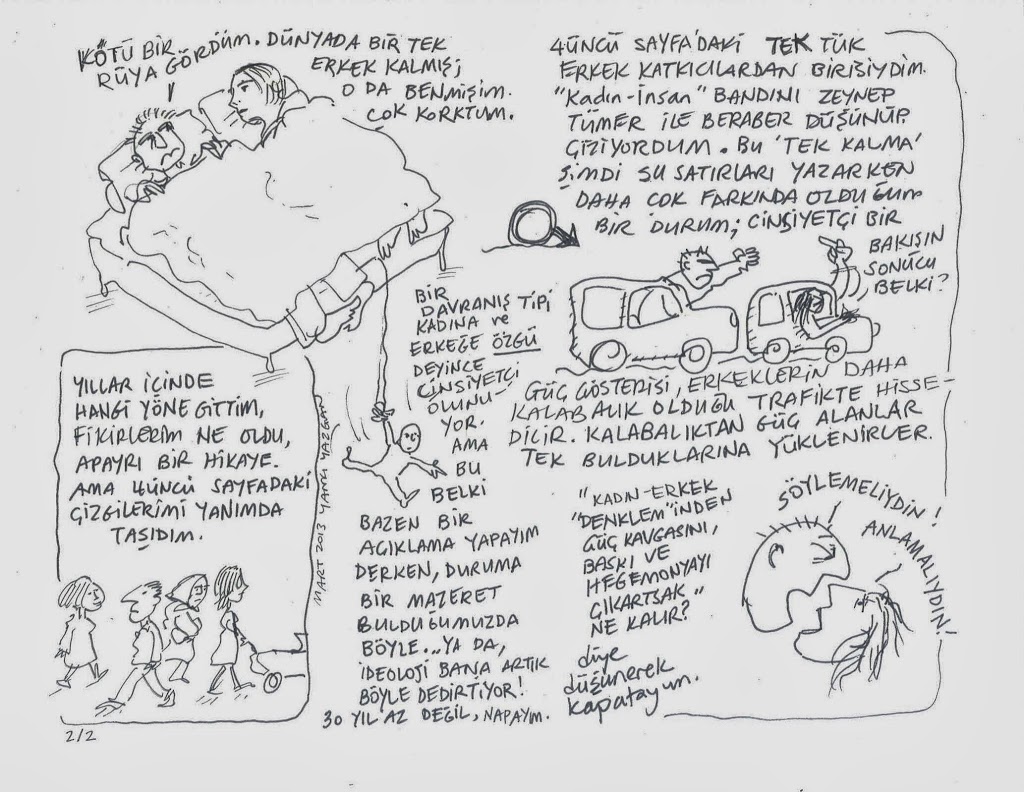 KÖTÜ BİR
RÜYA GÖRDÜM. DÜNYADA BİR TEK
ERKEK KALMIŞ;
O DA BENMİŞİM.
ÇOK KORKTUM.
4ÜNCÜ SAYFA'DAKİ TEK TÜK
ERKEK KATKICILARDAN BİRİSİYDİM.
"Kadın-İnsan" BANDINI ZEYNEP
TÜMER İLE BERABER DÜŞÜNÜP
ÇİZİYORDUM. BU 'TEK KALMA'
ŞİMDİ ŞU SATIRLARI YAZARKEN
DAHA ÇOK FARKINDA OLDUĞUM
BİR DURUM; CİNSİYETÇİ BİR
BAKIŞIN
SONUCU
BELKİ?
GÜÇ GÖSTERİSİ, ERKEKLERİN DAHA
KALABALIK OLDUĞU TRAFİKTE HİSSE-
DİLİR. KALABALIKTAN GÜÇ ALANLAR
TEK BULDUKLARINA YÜKLENİRLER.
"KADIN-ERKEK
"DENKLEM"İNDEN
GÜÇ KAVGASINI,
BASKI VE
HEGEMONYAYI
ÇIKARTSAK"
NE KALIR?
diye
düşünerek
kapatayım.
SÖYLEMELİYDİN!
ANLAMALIYDIN!
BİR
DAVRANIŞ TİPİ
KADINA ve
ERKEĞE ÖZGÜ
DEYİNCE
CİNSİYETÇİ
OLUNU-
YOR.
AMA
BU
BELKİ
BAZEN BİR
AÇIKLAMA YAPAYIM
DERKEN, DURUMA
BİR MAZERET
BULDUĞUMUZDA
BÖYLE...YA DA,
İDEOLOJİ BANA ARTIK
BÖYLE DEDİRTİYOR!
30 YIL AZ DEĞİL, NAPAYIM.
YILLAR İÇİNDE
HANGİ YÖNE GİTTİM,
FİKİRLERİM NE OLDU,
APAYRI BİR HİKAYE.
AMA 4ÜNCÜ SAYFADAKİ
ÇİZGİLERİMİ YANIMDA
TAŞIDIM.
MART 2013 YANKI YAZGAN
2/2